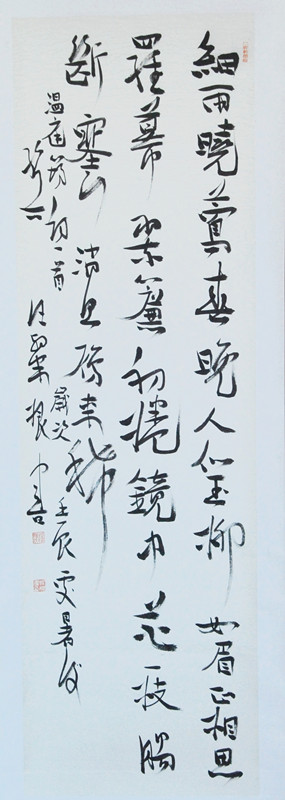 細雨曉鶯春晚人似玉柳如眉正相思
羅幕翠簾初捲鏡中花一枝腸
斷塞門消息雁來稀
温庭筠詞一首
歲次壬辰處暑後